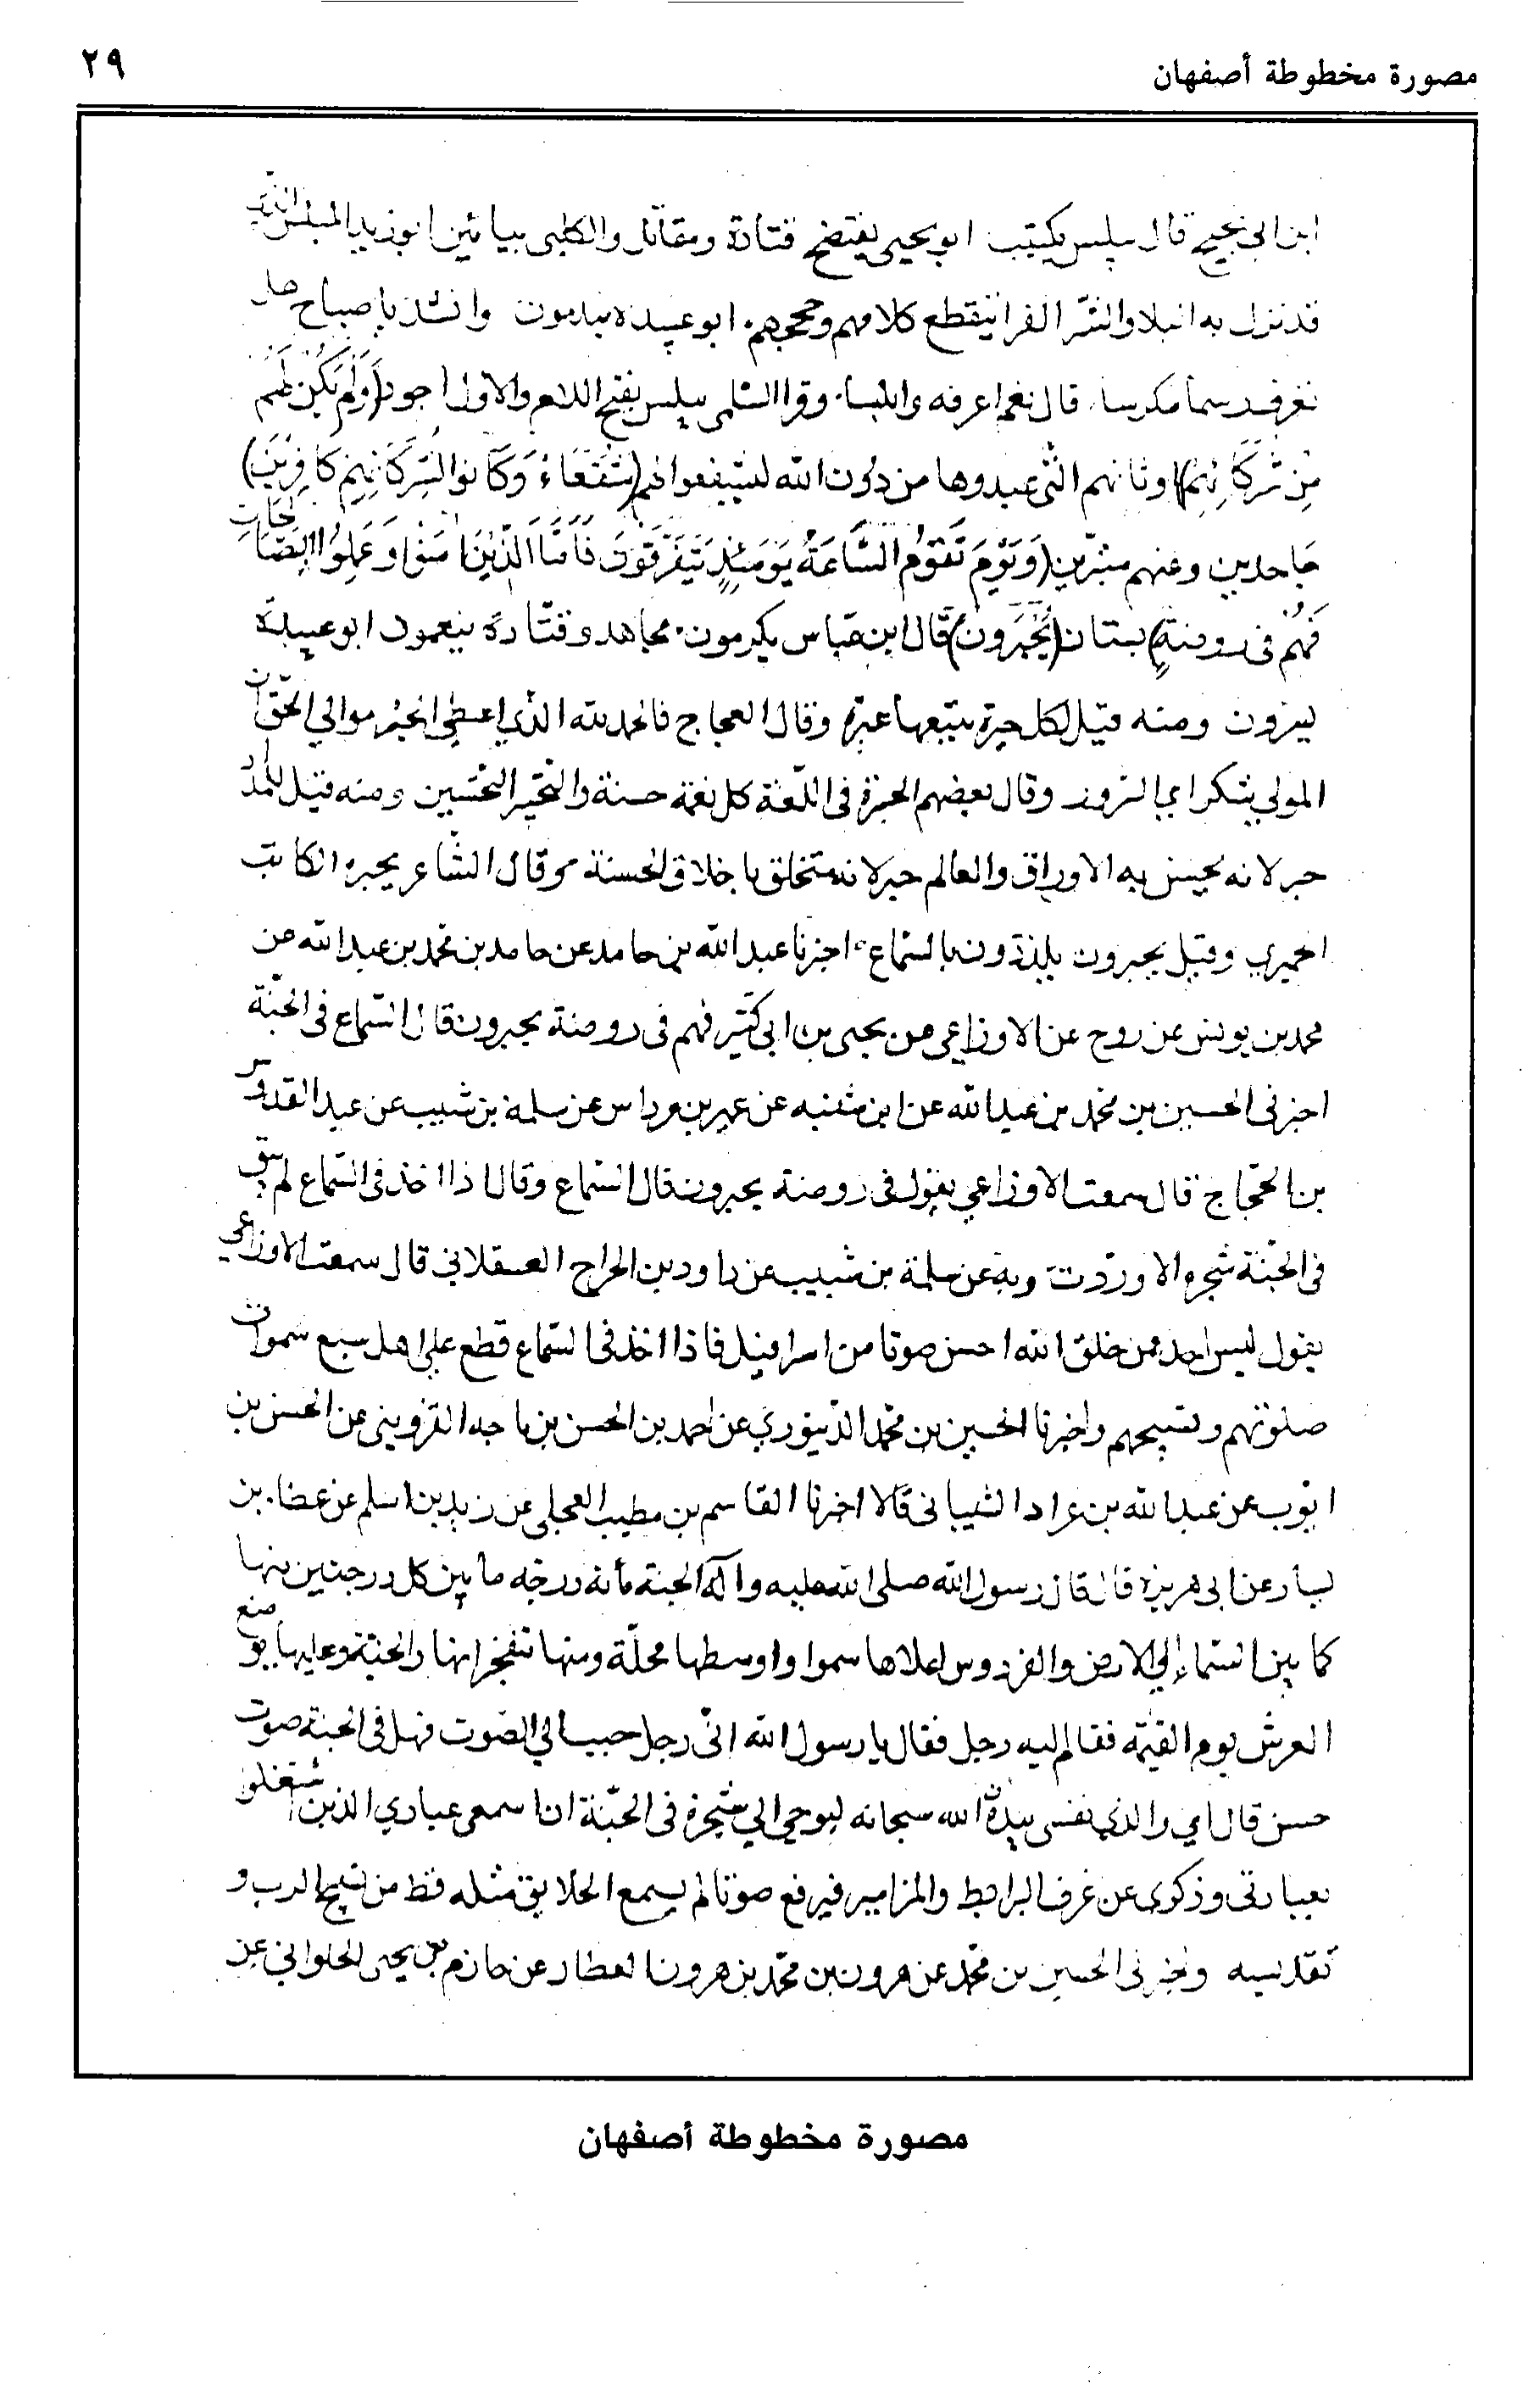 مصورة مخطوطة أصفهان
٢٩
ابن ابي نجيح قال يبلس يكتئب ابو يحيى يفتضح قتادة ومقاتل والكلبي ييائس ابو زيد المبلس الذي
قد نزل به البلاء والشر الفراء ينقطع كلامهم وحججهم ابو عبيدة يندمون وانشد يا صباح هل
تعرف رسما مكرسا قال نعم اعرفه وابلسا وقرا السلمي يبلس بفتح اللام والاول اجود (وَلَمْ يَكُنْ لَهُمْ
مِنْ شُرَكَائِهِمْ) اوثانهم التي عبدوها من دون الله ليشفعوا لهم (شُفَعَاءُ وَكَانُوا بِشُرَكَائِهِمْ كَافِرِينَ)
جاحدين وعنهم متبرّين (وَيَوْمَ تَقُومُ السَّاعَةُ يَوْمَئِذٍ يَتَفَرَّقُونَ فَأَمَّا الَّذِينَ امَنُوا وَعَمِلُوا الصَّالِحَاتِ
فَهُمْ فى روضةٍ) بستان (يُحْبَرون) قال ابن عباس يكرمون مجاهد وقتادة ينعمون ابو عبيدة
يسرون ومنه قيل كل حبرة يتبعها عبرة وقال العجاج فالحمد لله الذي اعطى الحبر موالي الحق ان
المولى شكر اي السرور وقال بعضهم الحبرة فى اللّغة كل نعمة حسنة والتحبير التحسين ومنه قيل للمداد
حبر لانه يحسن به الاوراق والعالم حبر لانه متخلق باخلاق الحسنة وقال الشاعر يحبره الكاتب
الحميري وقيل يحبرون يلذذون بالسّماع اخبرنا عبد الله بن حامد عن حامد بن محمد بن عبد الله عن
محمد بن يونس عن روح عن الاوزاعي عن يحيى بن ابي كثير فهم فى روضة يحبرون قال السّماع فى الجنّة
اخبرنى الحسين بن محمد بن عبد الله عن ابن شنبه عن عمير بن مرداس عن سلمة بن شبيب عن عبد القدوس
بن الحجّاج قال سمعت الاوزاعي يقول فى روضة يحبرون قال السّماع وقال اذا اخذ فى السّماع لم يبق
فى الجنّة شجره الا ورّدت وبه عن سلمة بن شبيب عن داود بن الجراح العسقلاني قال سمعت الاوزاعي
يقول ليس احد ممن خلق الله احسن صوتا من اسرافيل فاذا اخذ فى السّماع قطع على اهل سبع سموات
صلوتهم وتسبيحهم واخبرنا الحسين بن محمّد الدّينوري عن احمد بن الحسن بن ماجه القزويني عن الحسن بن
ايوب عن عبد الله بن عراد الشيباني قالا اخبرنا القاسم بن مطيب العجلي عن زيد بن اسلم عن عطاء بن
يسار عن ابي هريرة قال قال رسول الله صلى الله عليه وآله الجنة مأئة درجه ما بين كل درجتين منها
كما بين السّماء إلى الارض والفردوس اعلاها سموا واوسطها محلّة ومنها تنفجر انهار الجنّة وعليها يوضع
العرش يوم القيمة فقام اليه رجل فقال يا رسول الله انّى رجل حبب الي الصّوت فهل فى الجنة صوت
حسن قال اي والذي نفسى بيده انّ الله سبحانه ليوحي الي شجرة فى الجنّة ان اسمعى عبادي الذين اشتغلوا
بعبادتى وذكرى عن عزف البرابط والمزامير فيرفع صوتا لم يسمع الخلايق مثله قط من تسبيح الرب و
تقديسه واخبرنى الحسين بن محمّد عن هرون بن محمّد بن هرون العطار عن حازم بن يحيى الحلوانى عن
مصورة مخطوطة أصفهان